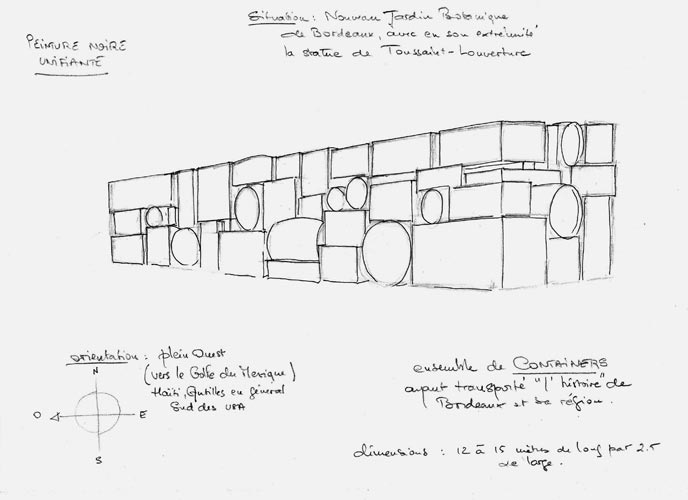 Situation : Nouveau Jardin Botanique
de Bordeaux, avec en son extrémité
la statue de Toussaint-Louverture
PEINTURE NOIRE
UNIFIANTE
orientation : plein Ouest
(vers le Golfe du Mexique)
Haïti, Antilles en général
Sud des USA
N
O
E
S
ensemble de CONTAINERS
ayant transporté "l'histoire" de
Bordeaux et sa région.
dimensions : 12 à 15 mètres de long par 2.5
de large.